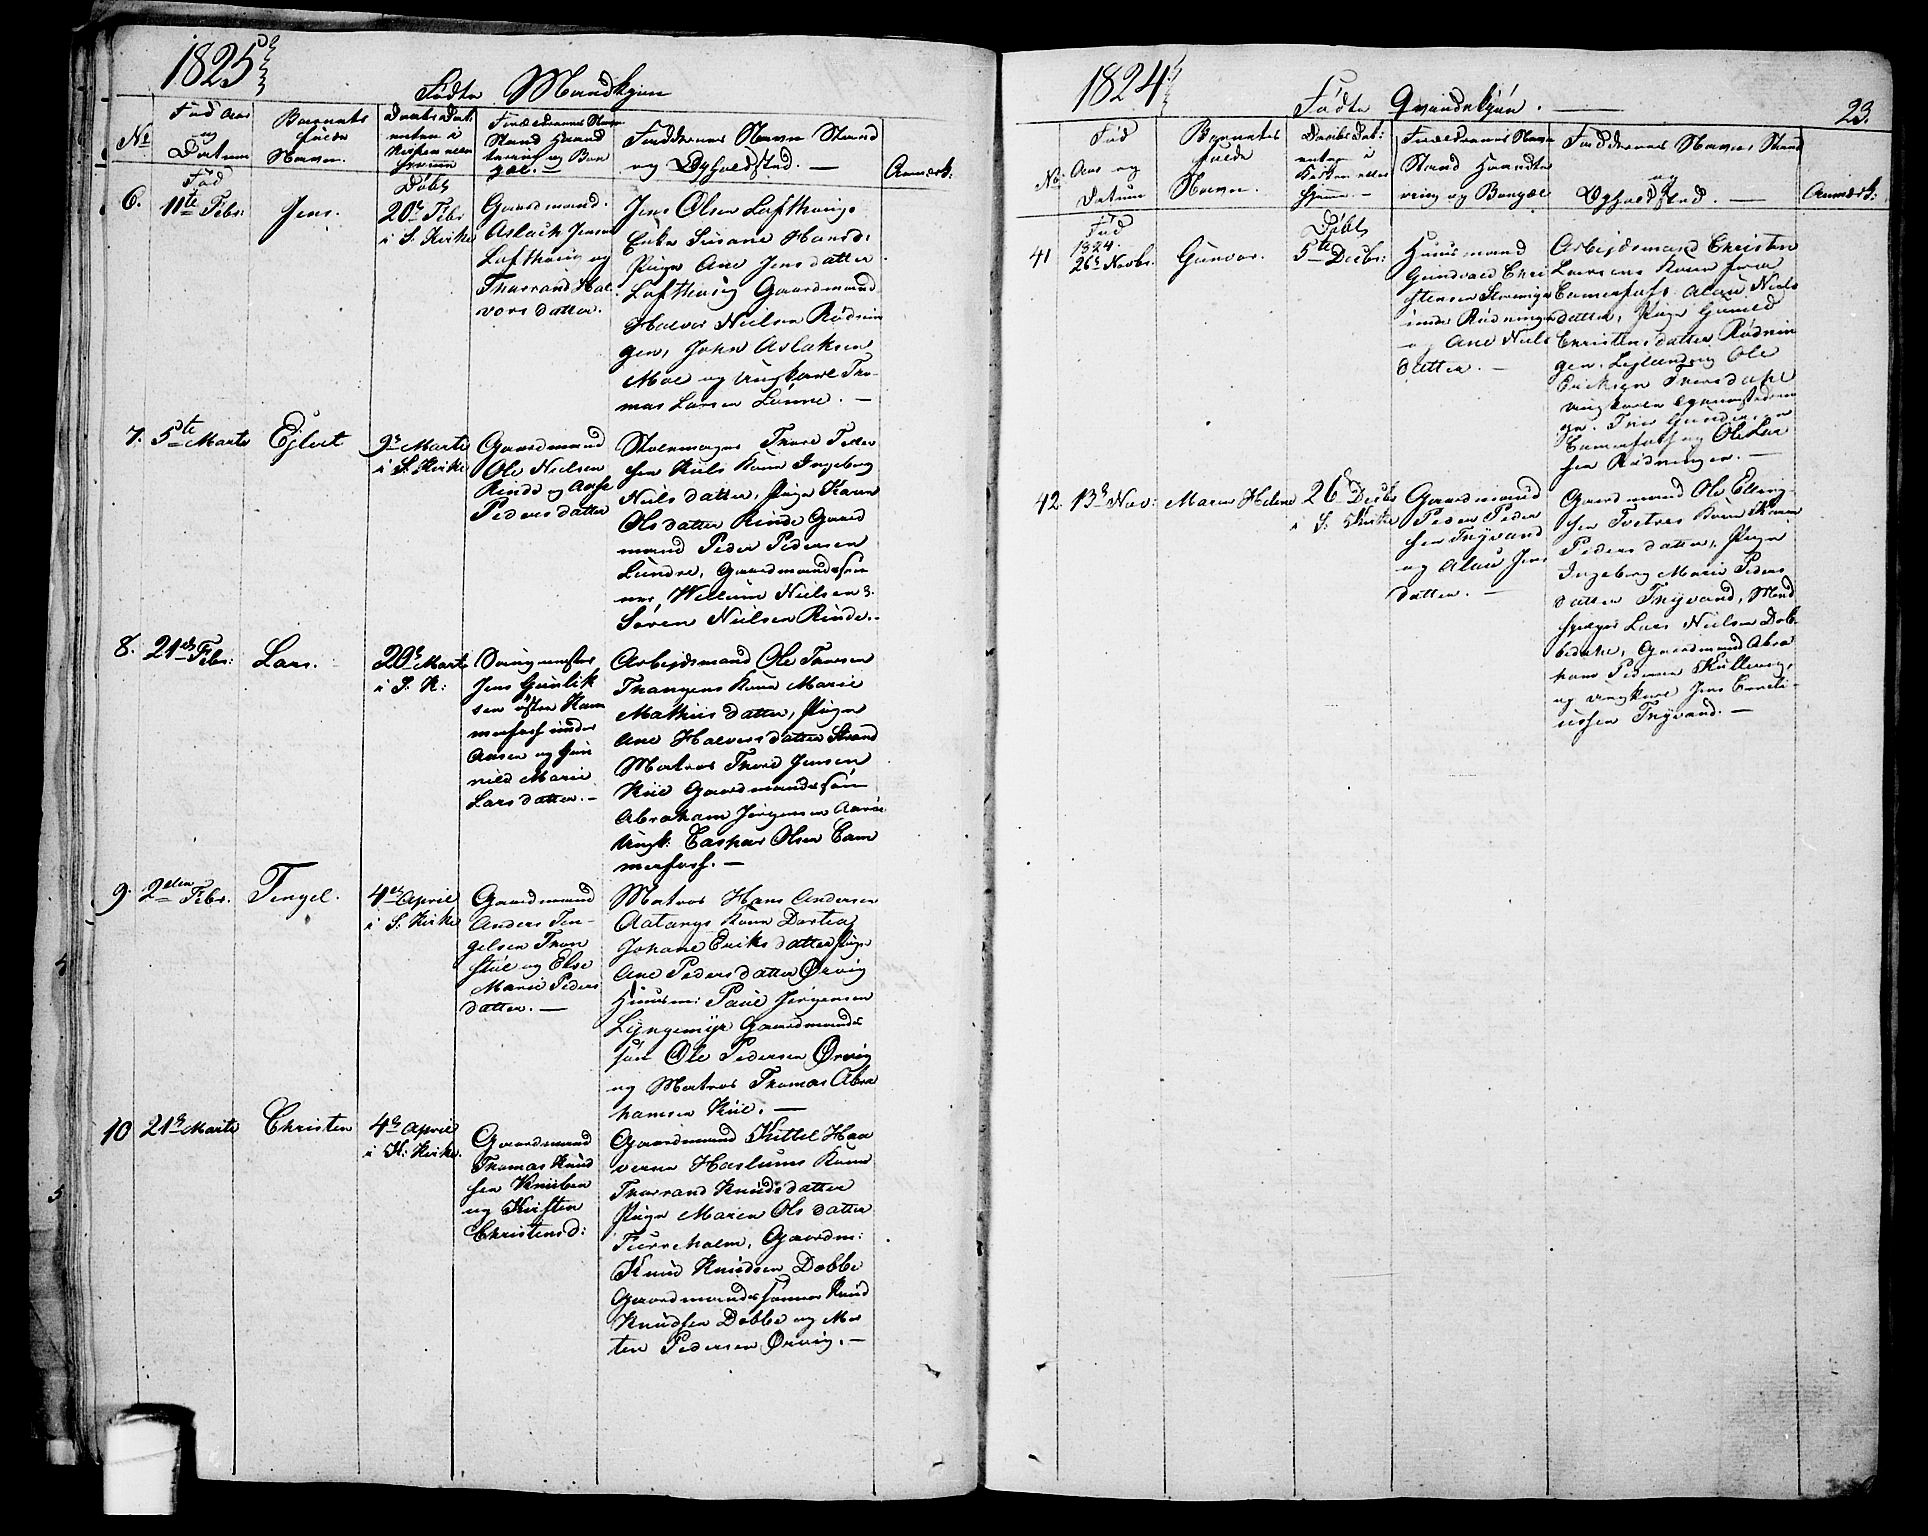 1825
Fødte Mandkjøn
No
Fød Aar
og
Datum
Barnets
fulde
Navn.
Daabs Dat
Forældrenes Navn
Stand Haand
tering og Bo
pæl.
Faddernes Navn Stand
og Opholdsted. —
Anmærk:
6.
Fød
11te Febr:
Jens.
Døbt
20de Febr
i S. Kirke
Gaardmand
Aslach Jensen
Lofthuig og
Thorrand Hal
vorsdatter.
Jens Olsen Lofthuigs
Enke Susane Hansd:
Pige Ane Jensdatter
Lofthuig Gaardmand
Halvor Nielsen Rødnin
gen, John Aslaksen
Moe og Ungkarl Tho-
mas Larsen Lunne. —
7. 5te Marts
Ejlert
9de Marts
i S. Kirke
Gaardmand
Ole Nielsen
Rinde og Aase
Pedersdatter
Thore Peder
sen Kiils Kone Ingeborg
Nielsdatter, Pige Karen
Olsdatter Rinde Gaard
mand Peder Pedersen
Lundre, Gaardmandssøn
ner Willum Nielsen &
Søren Nielsen Rinde.
8. 21de Febr:
Lars.
20de Marts
i S: K:
Jens Gunlik
sen østre Kam
merfoss under
Aasen og Gun
nild Marie
Larsdatter. —
Arbejdsmand Ole Thorsen
Tangens Kone Marie
Mathiisdatter, Pigen
Ane Halvorsdatter Strand
Matros Thord Jensen
Kiil Gaardmandssøn
Abraham Jørgensen Aarøe
Ungk: Casper Olsen Cam
merfoss. —
9. 2den Febr.
Tengel.
4de April
i S: Kirke
Gaardmand
Anders Ten-
gelsen Thor
stvet og Else
Marie Peders
datter. —
Matros Hans Andersen
Aatangs Kone Dortea
Johane Eriksdatter Pige
Ane Pedersdatter Ørvig
Huusm: Povel Jørgensen
Lyngemyr Gaardmands
søn Ole Pedersen Ørvig
og Matros Thomas Abra
hamsen Kiil. —
10 21de Marts
Christen
4de April
i K: Kirke.
Gaardmand
Thomas Knud
sen Knieben
og Kirsten
Christensd:
Gaardmand Kittel Hal
vorsen Haslums Kone
Thorrand Knudsdatter
Pige Maren Olsdatter
Furreholm, Gaardm:
Knud Knudsen Dobbe
Gaardmandssønner Knud
Knudsen Dobbe og Mor
ten Pedersen Ørvig. —
1824
Fødte Qvindekjøn. —
23.
No:
Fød
Aar og
Datum
Barnets
fulde
Navn.
Daabs Dat:
enten i
Kirken eller
hjem —
Forældrenes Navn
Stand Haandte
ring og Bopæl
Faddernes Navn, Stand
og
Opholdsted. —
Anmærk:
41
Fød
1824
26de Novbr.
Gunvor.
Døbt
5te Decbr:
Huusmand
Gundvald Chri
stensen
under Rødningen
og Ane Niels
datter. —
Arbejdsmand Christen
Larsens Kone fra
Camerfoss Alau Niels
datter, Pige Gunild
Christensdatter Rødnin
gen og Ole
Eriksen
Camerfoss og Ole Lar
sen Rødningen. —
42. 13de Nov:
Maren Helene
26 Decbr
i S: Kirke
Gaardmand
Peder Peder
sen Tryvand
og Alau Jens
datter. —
Gaardmand Ole Elling
sen Tvetens Kone Karen
Pedersdatter, Pige
Ingeborg Marie Peders
datter Tryvand, Mand
Lars Nielsen Dob
bedahl, Gaardmand Abra
ham Pedersen Kullevig,
og Ungkarl Jens Corneli-
ussen Tryvand. —